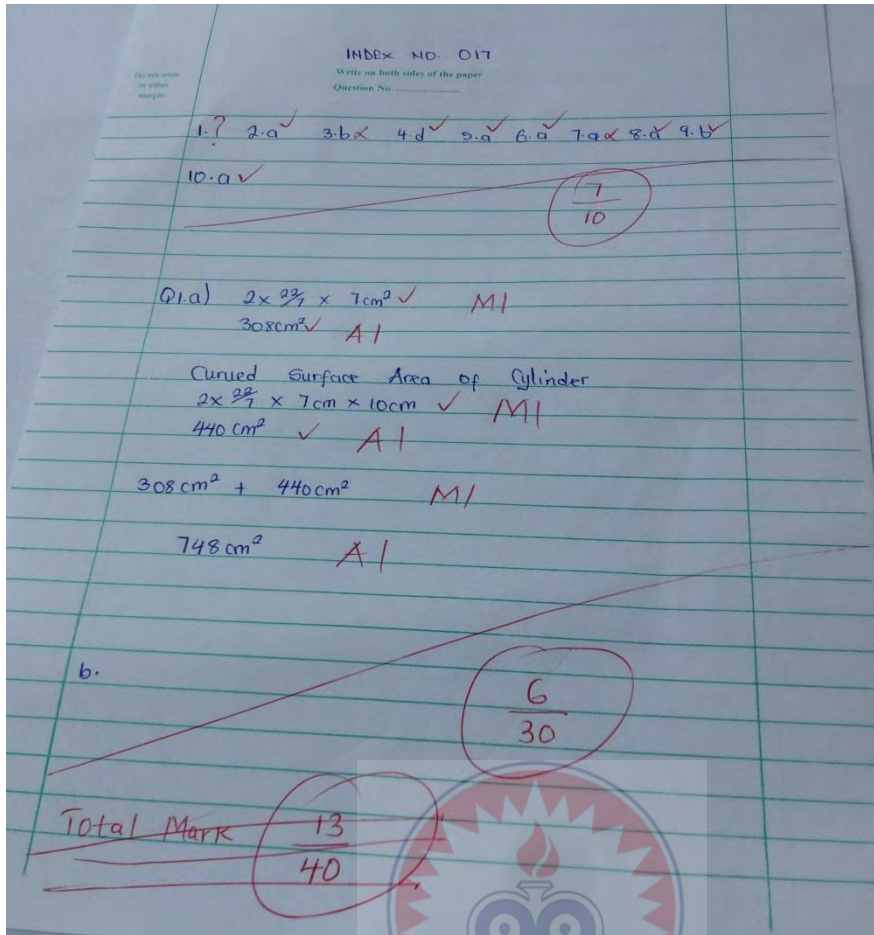 INDEX NO. 017
Do not write
in either
margin
Write on both sides of the paper
Question No. ........................
1. ? 2.a ✓ 3.b ✗ 4.d ✓ 5.a ✓ 6.a ✓ 7.a ✗ 8.d ✓ 9.b ✓
10.a ✓
7/10
Q1.a) 2 × 22/7 × 7cm² ✓ M1
308cm² ✓ A1
Curved Surface Area of Cylinder
2× 22/7 × 7cm × 10cm ✓ M1
440 cm² ✓ A1
308cm² + 440cm² M1
748cm² A1
b.
6/30
Total Mark 13/40